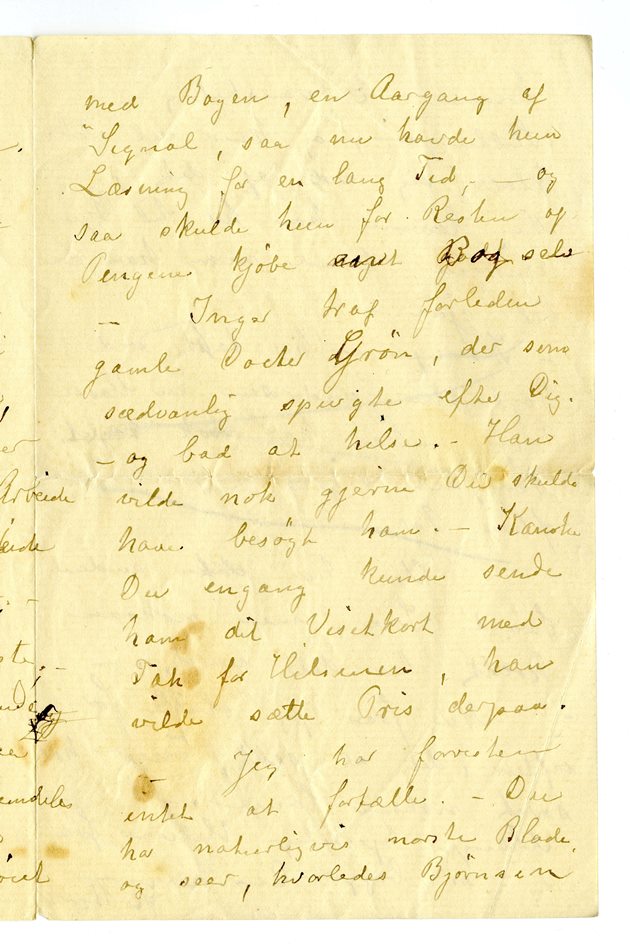 med Bogen, en Aargang af
"Signal, saa nu havde hun
Læsning for en lang Tid, — og
saa skulde hun for Resten af
Pengene kjøbe noget selv
— Inga traf forleden
gamle Docter Grön, der som
sædvanlig spurgte efter Dig.
— og bad at hilse. — Han
vilde nok gjerne Du skulde
have besøgt ham. — Kanske
Du engang kunde sende
ham dit Visitkort med
Tak for Hilsenen, han
vilde sætte Pris derpaa.
— Jeg har forresten
intet at fortælle. — Du
har naturligvis norske Blade,
og seer, hvorledes Bjørnsen
Arbeide